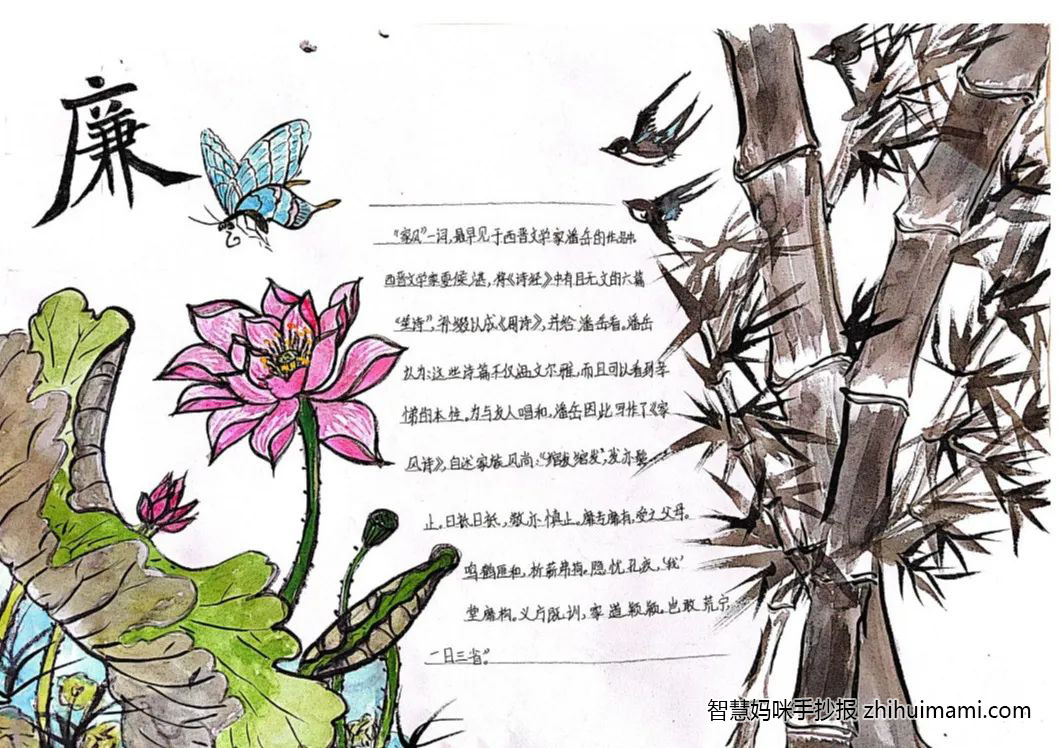 廉
“家风”一词,最早见于西晋文学家潘岳的作品中
西晋文学家夏侯湛,将《诗经》中有目无文的六篇
“笙诗”,补缀以成《周诗》,并给潘岳看。潘岳
认为:这些诗篇不仅温文尔雅,而且可以看到孝
悌的本性。为与友人唱和,潘岳因此写作了《家
风诗》,自述家族风尚:“绾发绾发,发亦鬓
止。日祗日祗,敬亦慎止。靡专靡有,受之父母。
鸣鹤匪和,析薪弗荷。隐忧孔疚,‘我’
堂靡构。义方既训,家道颖颖。岂敢荒宁
一日三省。”
智慧妈咪手抄报 zhihuimami.com